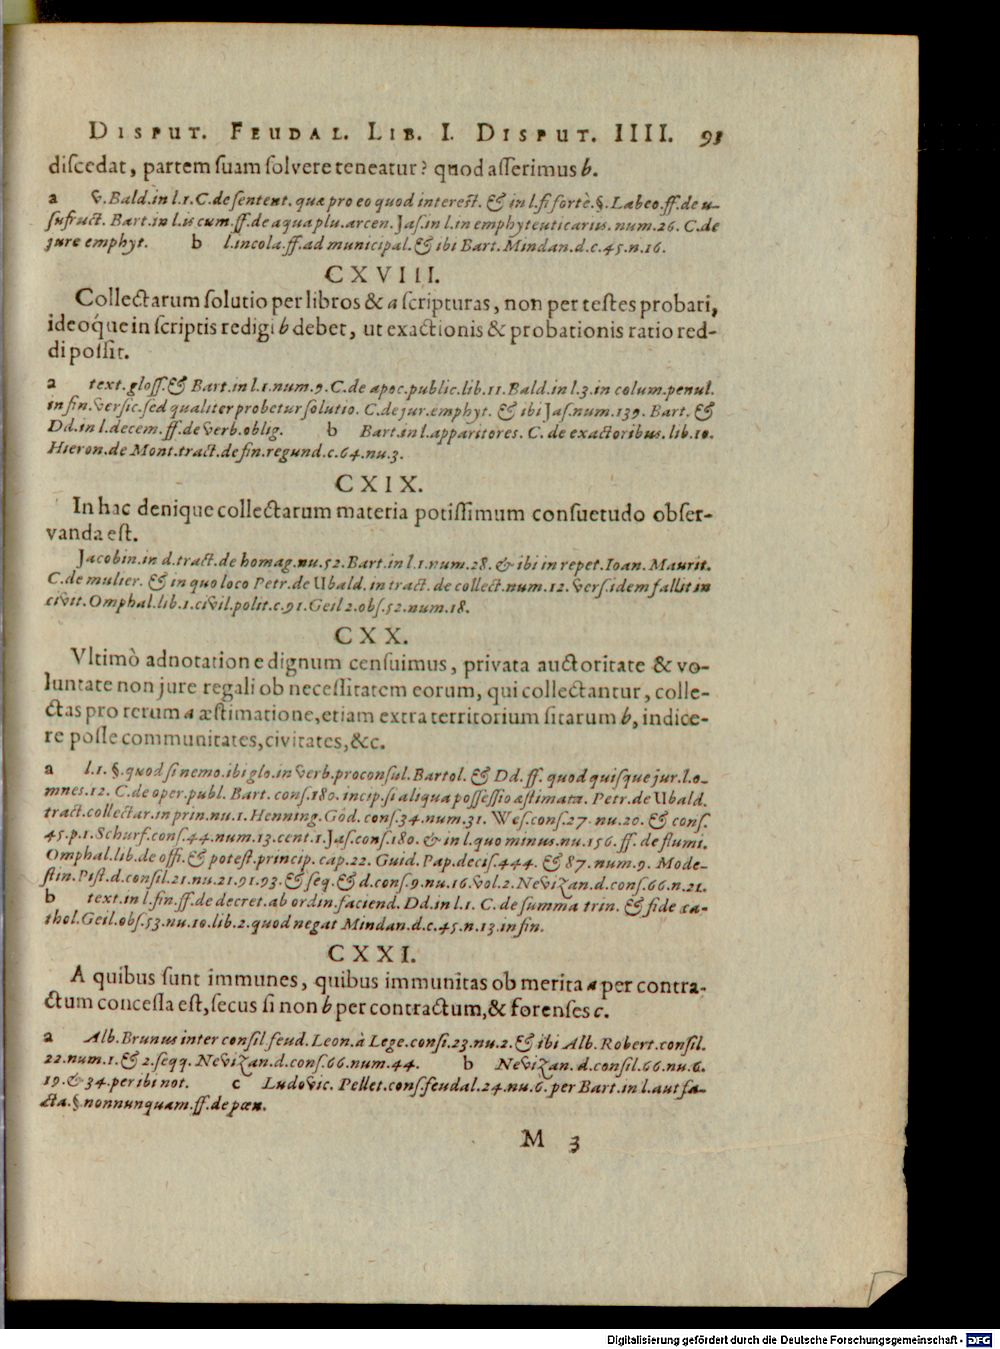 DISPUT. FEUDAL. LIB. I. DISPUT. IIII. 93
discedat, partem suam solvere teneatur? quod asserimus b.
a v. Bald. in l. 1. C. de sentent. quæ pro eo quod interest. & in l. si fortè. §. Labeo. ff. de u-
sufruct. Bart. in l. is cum. ff. de aqua plu. arcen. Jas. in l. in emphyteuticariis. num. 26. C. de
jure emphyt. b l. incola. ff. ad municipal. & ibi Bart. Mindan. d. c. 45. n. 16.
CXVIII.
Collectarum solutio per libros & a scripturas, non per testes probari,
ideoq́ue in scriptis redigi b debet, ut exactionis & probationis ratio red-
di possit.
a text. gloss. & Bart. in l. 1. num. 9. C. de apoc. public. lib. 11. Bald. in l. 3. in colum. penul.
in fin. versic. sed qualiter probetur solutio. C. de jur. emphyt. & ibi Jas. num. 139. Bart. &
Dd. in l. decem. ff. de verb. oblig. b Bart. in l. apparitores. C. de exactoribus. lib. 10.
Hieron. de Mont. tract. de fin. regund. c. 64. nu. 3.
CXIX.
In hac denique collectarum materia potissimum consuetudo obser-
vanda est.
Jacobin. in d. tract. de homag. nu. 52. Bart. in l. 1. num. 28. & ibi in repet. Ioan. Maurit.
C. de mulier. & in quo loco Petr. de Ubald. in tract. de collect. num. 12. vers. idem fallit in
civit. Omphal. lib. 1. civil. polit. c. 91. Geil 2. obs. 52. num. 18.
CXX.
Vltimò adnotatione dignum censuimus, privata auctoritate & vo-
luntate non jure regali ob necessitatem eorum, qui collectantur, colle-
ctas pro rerum a æstimatione, etiam extra territorium sitarum b, indice-
re posse communitates, civitates, &c.
a l. 1. §. quod si nemo. ibi glo. in verb. proconsul. Bartol. & Dd. ff. quod quisque jur. l. o-
mnes. 12. C. de oper. publ. Bart. cons. 180. incip. si aliqua possessio æstimata. Petr. de Ubald.
tract. collectar. in prin. nu. 1. Henning. God. cons. 34. num. 31. Wes. cons. 27. nu. 20. & cons.
45. p. 1. Schurf. cons. 44. num. 13. cent. 1. Jas. cons. 180. & in l. quo minus. nu. 156. ff. de flumi.
Omphal. lib. de offi. & potest. princip. cap. 22. Guid. Pap. decis. 444. & 87. num. 9. Mode-
stin. Pist. d. consil. 21. nu. 21. 91. 93. & seq. & d. cons. 9. nu. 16. vol. 2. Nevizan. d. cons. 66. n. 21.
b text. in l. fin. ff. de decret. ab ordin. faciend. Dd. in l. 1. C. de summa trin. & fide ca-
thol. Geil. obs. 53. nu. 10. lib. 2. quod negat Mindan. d. c. 45. n. 13. in fin.
CXXI.
A quibus sunt immunes, quibus immunitas ob merita a per contra-
ctum concessa est, secus si non b per contractum, & forenses c.
a Alb. Brunus inter consil. feud. Leon. à Lege. consi. 23. nu. 2. & ibi Alb. Robert. consil.
22. num. 1. & 2. seqq. Nevizan. d. cons. 66. num. 44. b Nevizan. d. consil. 66. nu. 6.
19. & 34. per ibi not. c Ludovic. Pellet. cons. feudal. 24. nu. 6. per Bart. in l. aut fa-
cta. §. nonnunquam. ff. de pœn.
M 3
Digitalisierung gefördert durch die Deutsche Forschungsgemeinschaft - DFG